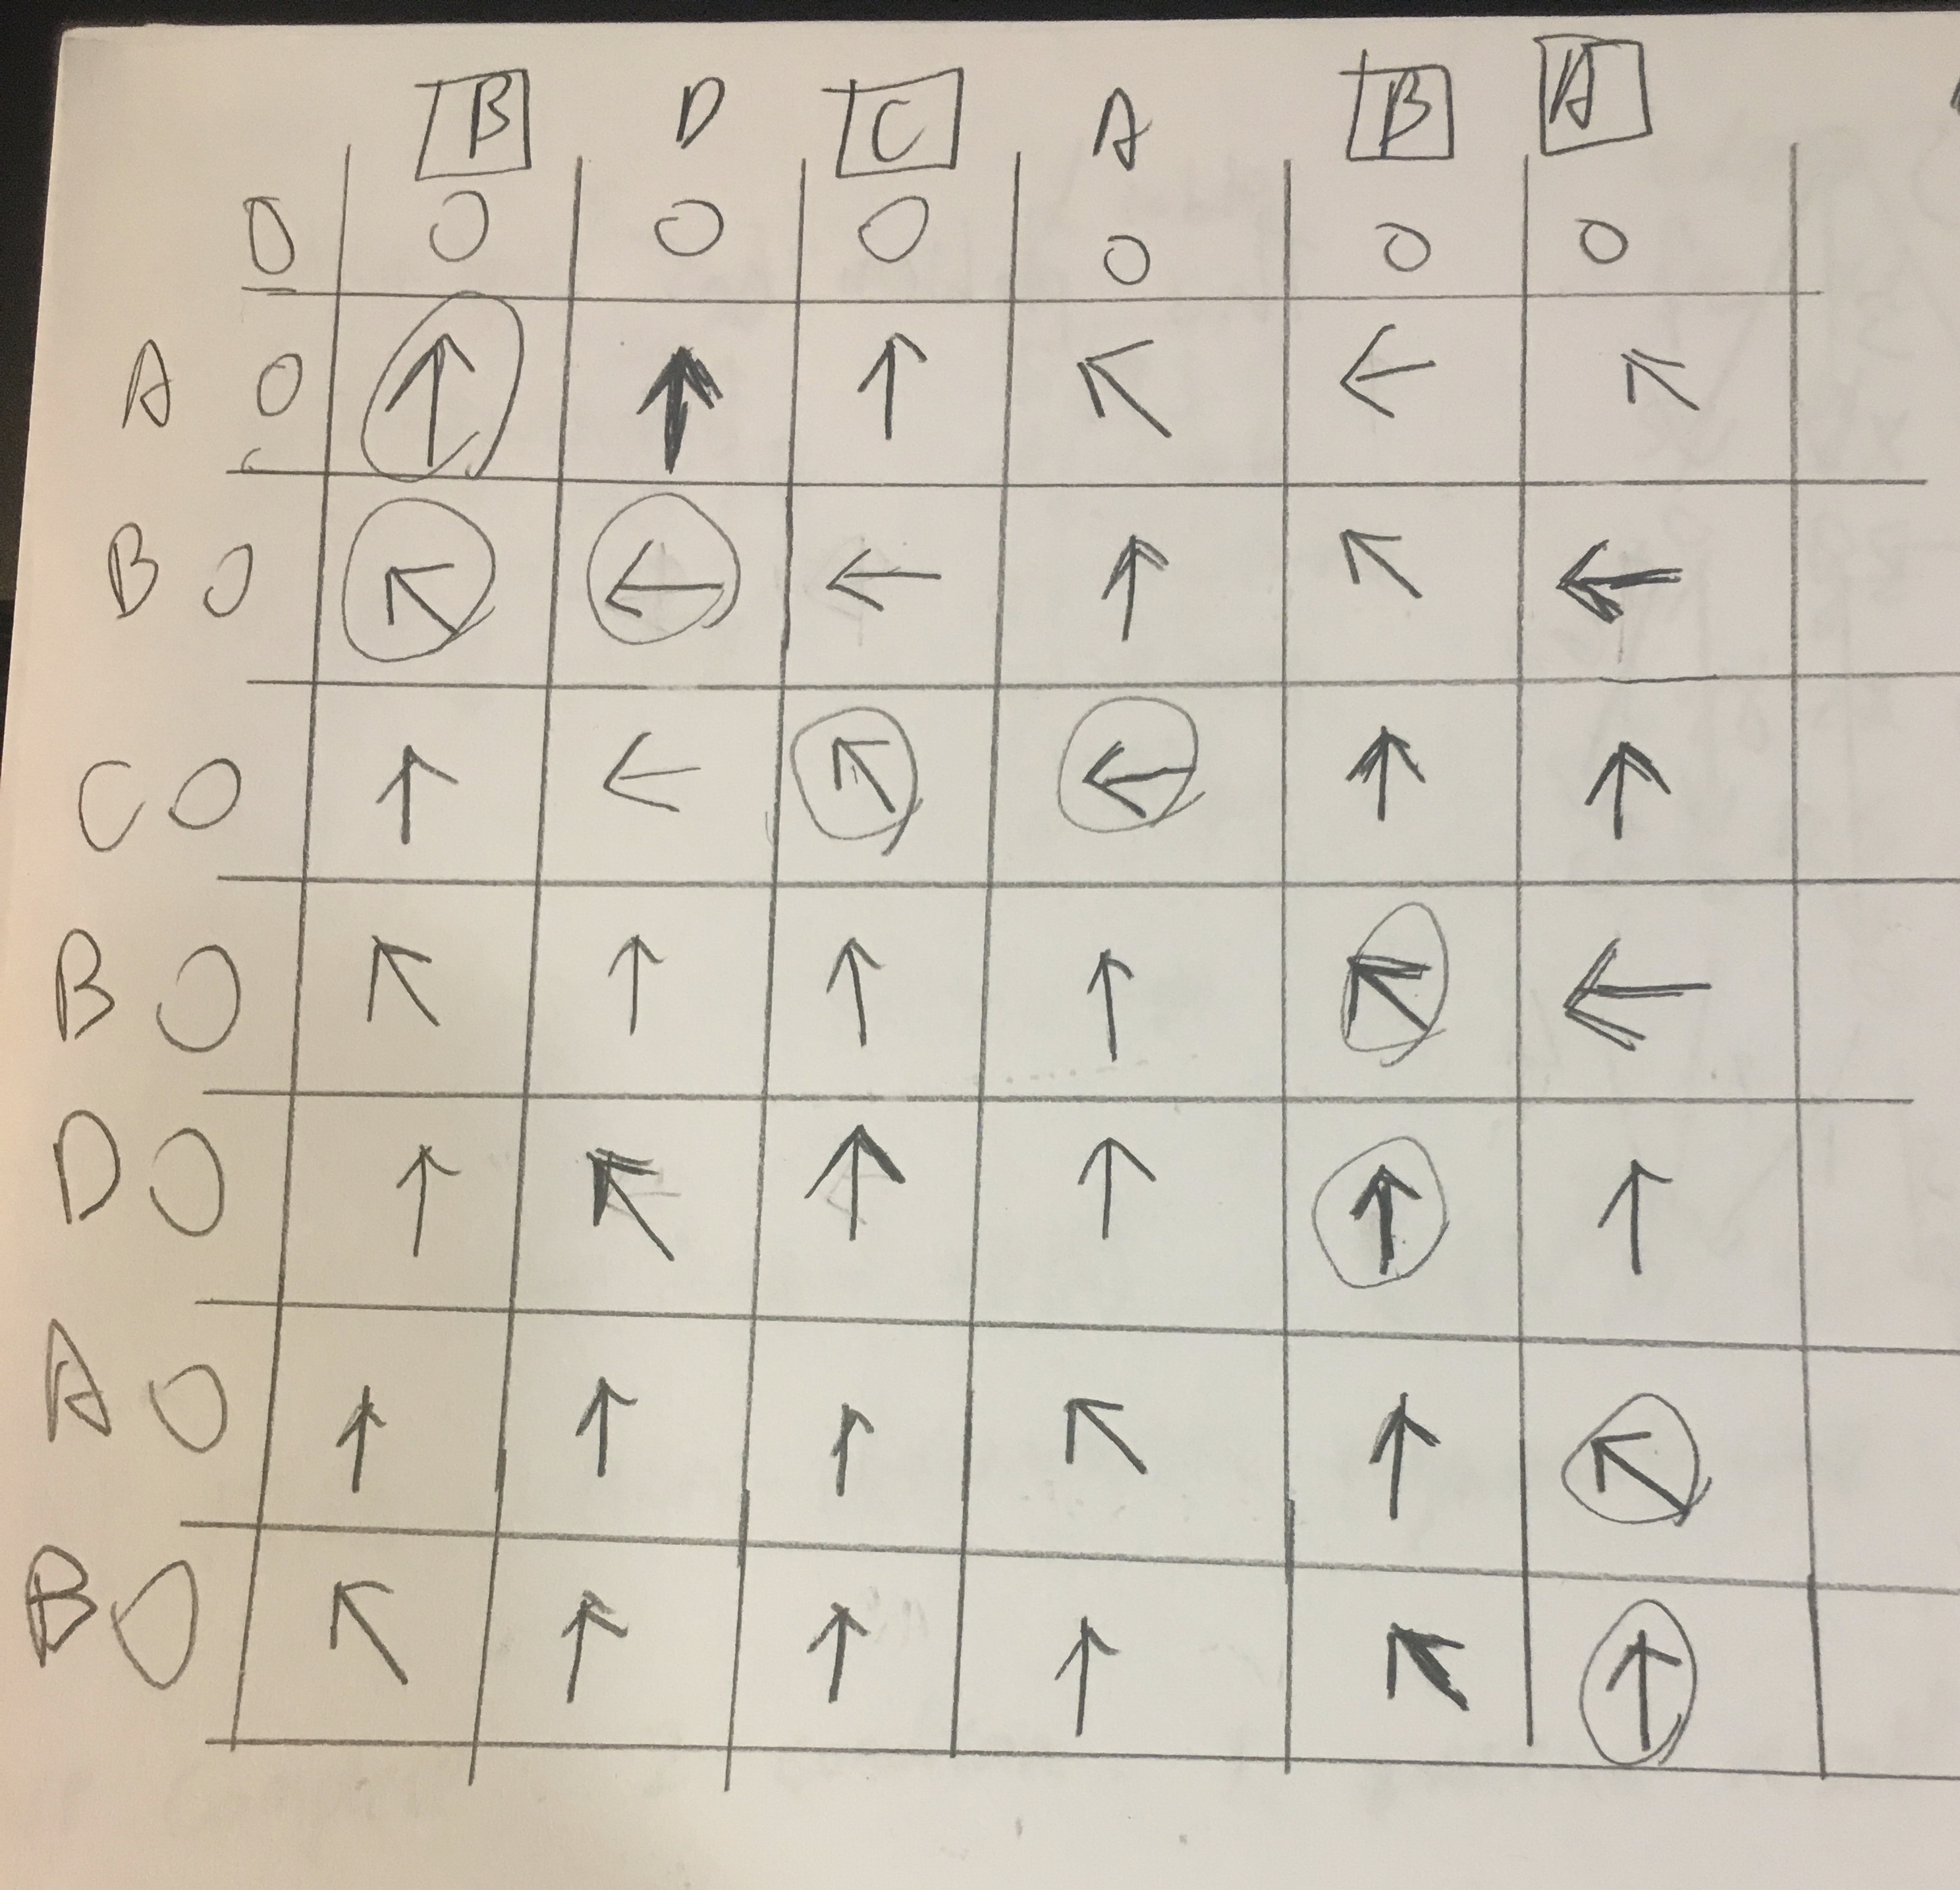 B D C A B A
0 0 0 0 0 0 0
A 0 ↑ ↑ ↑ ↖ ← ↖
B 0 ↖ ← ← ↑ ↖ ←
C 0 ↑ ← ↖ ← ↑ ↑
B 0 ↖ ↑ ↑ ↑ ↖ ←
D 0 ↑ ↖ ↑ ↑ ↑ ↑
A 0 ↑ ↑ ↑ ↖ ↑ ↖
B 0 ↖ ↑ ↑ ↑ ↖ ↑